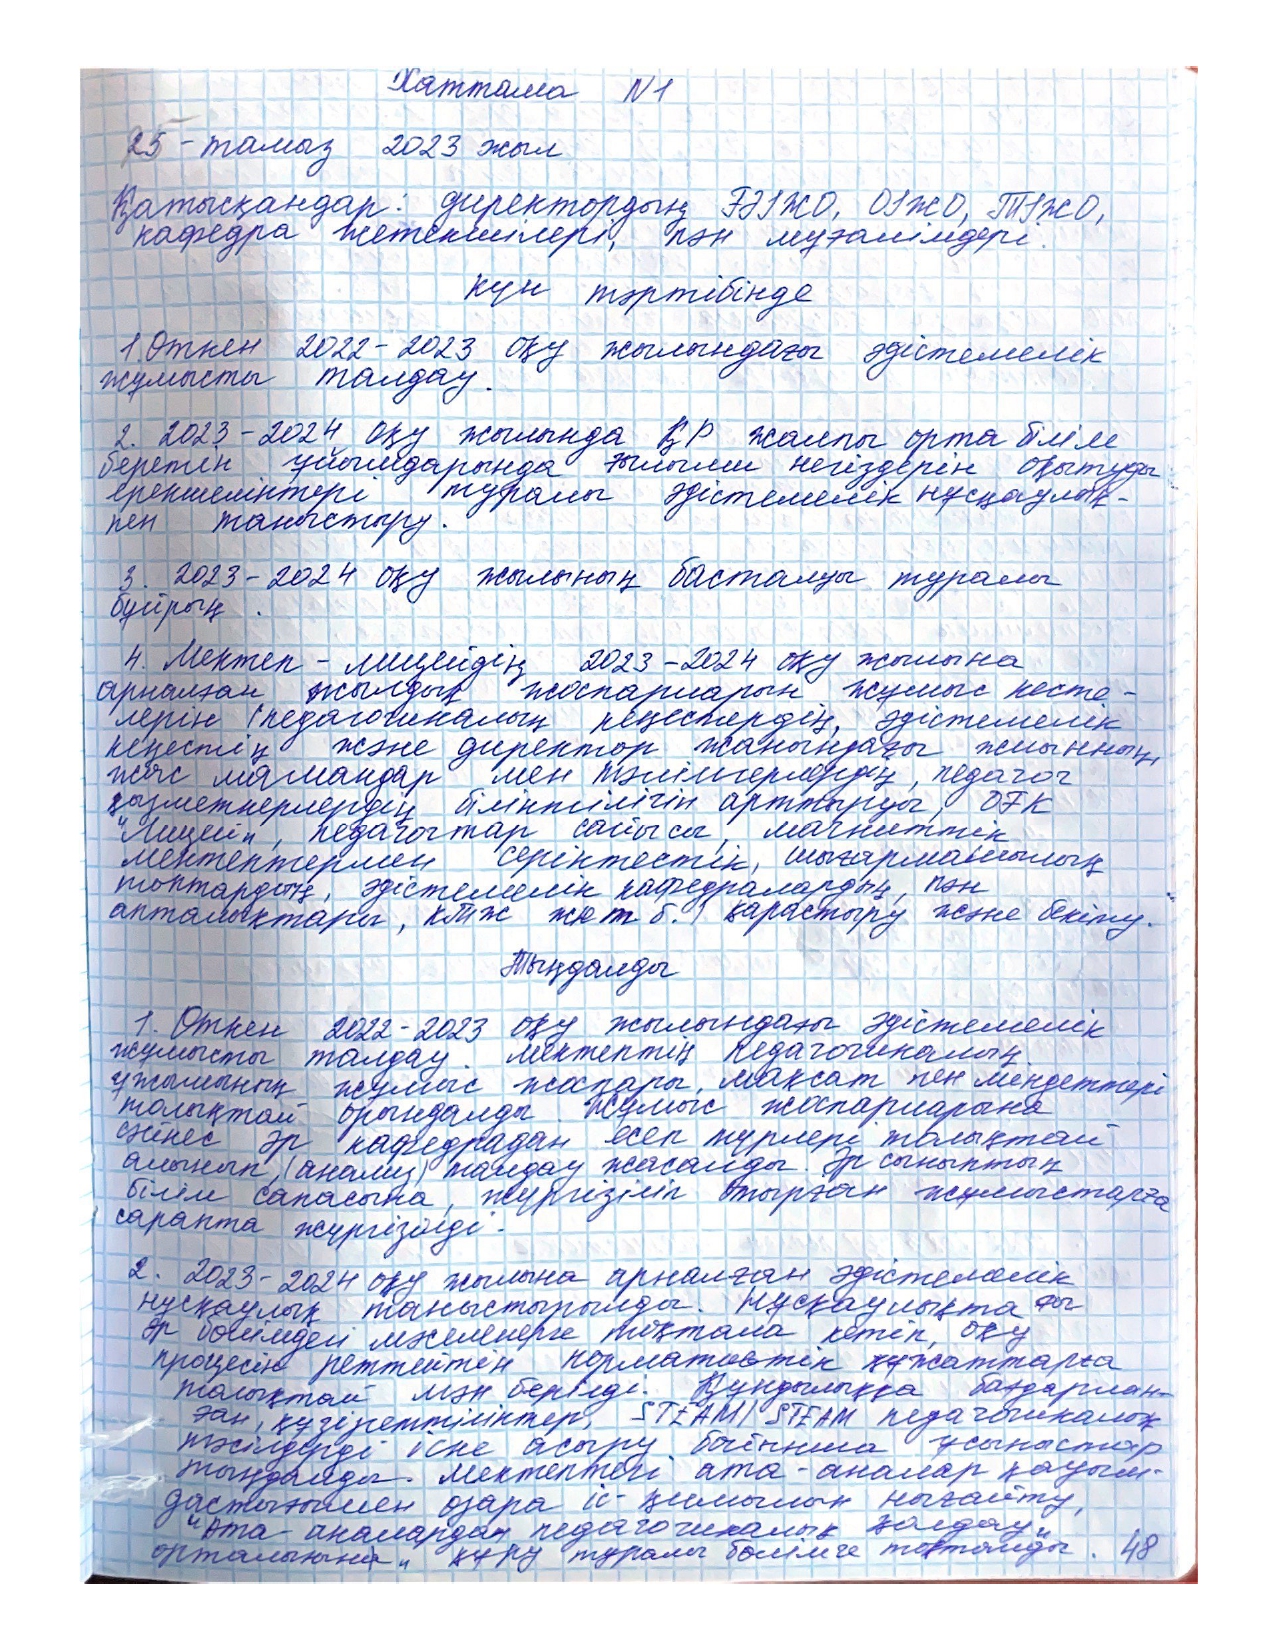 Хаттама N1
25-тамыз 2023 жыл
Қатысқандар: директордың ҒӘІЖО, ОІЖО, ТІЖО,
кафедра жетекшілері, пән мұғалімдері.
Күн тәртібінде
1.Өткен 2022-2023 оқу жылындағы әдістемелік
жұмысты талдау.
2. 2023-2024 оқу жылында ҚР жалпы орта білім
беретін ұйымдарында ғылыми негіздерін оқытудың
ерекшеліктері туралы әдістемелік нұсқаулық-
пен таныстыру.
3. 2023-2024 оқу жылының басталуы туралы
бұйрық.
4. Мектеп-лицейдің 2023-2024 оқу жылына
арналған жылдық жоспарларын жұмыс кесте-
лерін (педагогикалық кеңестердің, әдістемелік
кеңестің және директор жанындағы жиынның,
жас мамандар мен тәлімгерлердің, педагог
қызметкерлердің біліктілігін арттыруы, ОҒК
"Лицей", педагогтар сайысы, магниттік
мектептермен серіктестік, шығармашылық
топтардың, әдістемелік кафедралардың, пән
апталықтары, КТЖ ж.т.б.) қарастыру және бекіту.
Тыңдалды
1. Өткен 2022-2023 оқу жылындағы әдістемелік
жұмысты талдау. Мектептің педагогикалық
ұжымының жұмыс жоспары, мақсат пен міндеттері
толықтай орындалды. Жұмыс жоспарларына
сәйкес әр кафедрадан есеп түрлері толықтай
алынып, (анализ) талдау жасалды. Әр сыныптың
білім сапасына, жүргізіліп отырған жұмыстарға
сарапта жүргізілді.
2. 2023-2024 оқу жылына арналған әдістемелік
нұсқаулық таныстырылды. Нұсқаулықтағы
әр бөлімдегі мәселенерге тоқтала кетіп, оқу
процесін реттейтін нормативтік құжаттарға
толықтай мән берілді. Құндылыққа бағдарлан-
ған, құзіреттіліктер, STEAM/STEAM педагогикалық
тәсілдерді іске асыру бойынша ұсыныстар
тыңдалды. Мектептегі ата-аналар қауым-
дастығымен өзара іс-қимылын нығайту,
"Ата-аналардан педагогикалық қолдау"
орталығына" құру туралы бөлімге тоқталды. 48